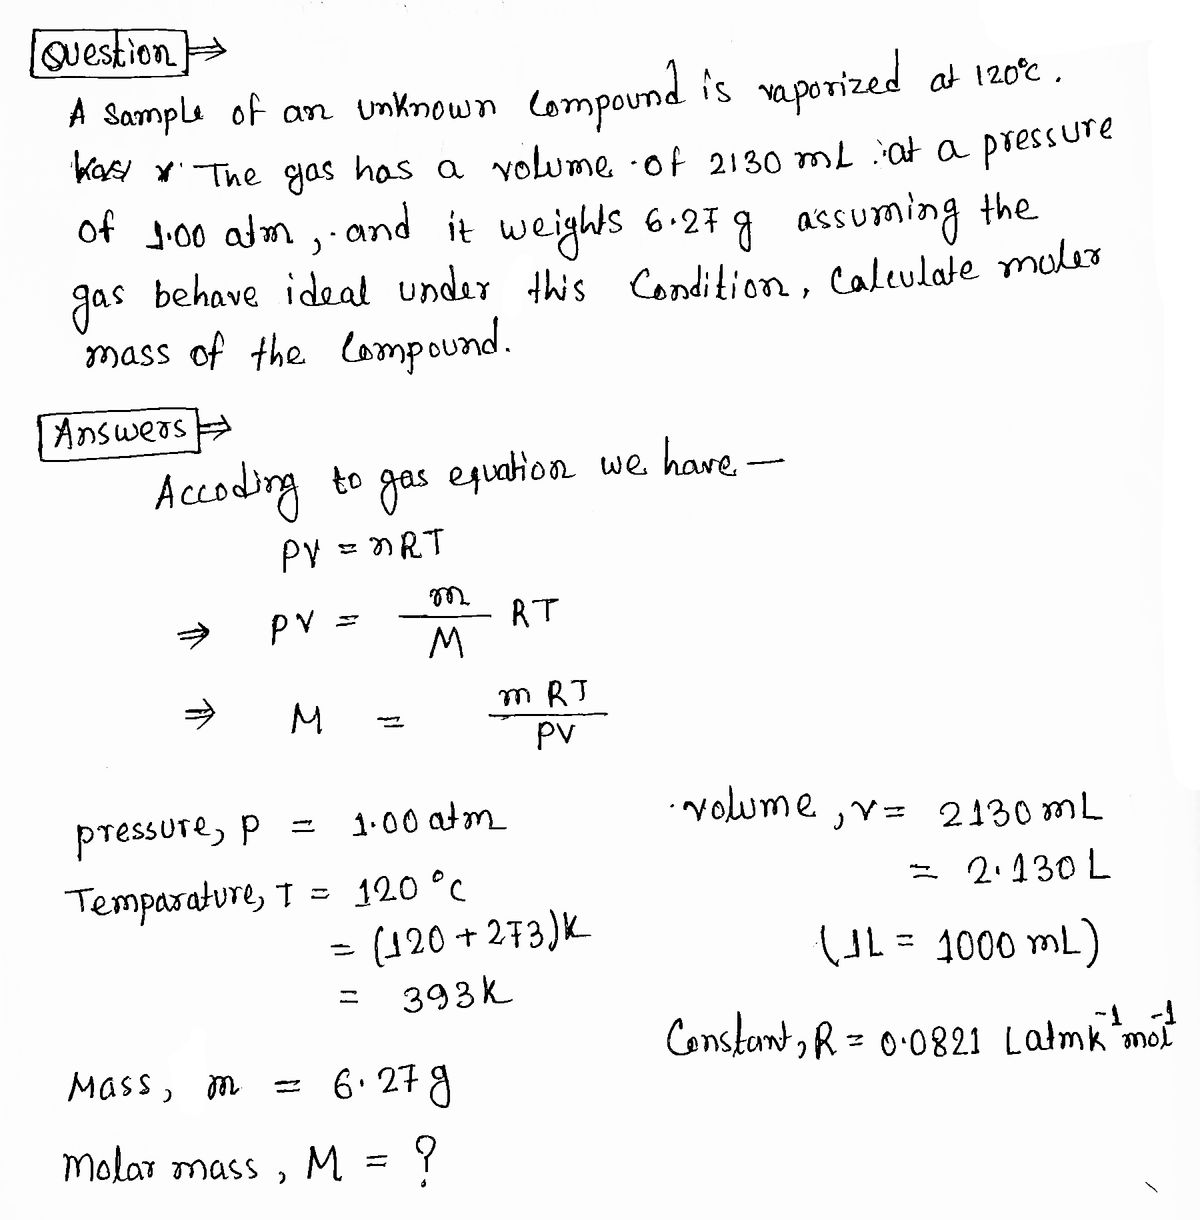 Question ⇒
A Sample of an unknown Compound is vaporized at 120°C.
The gas has a volume of 2130 mL at a pressure
of 1.00 atm, and it weights 6.27 g assuming the
gas behave ideal under this Condition, Calculate moler
mass of the Compound.
Answers ⇒
Accoding to gas equation we have —
PV = nRT
⇒ PV = m/M RT
⇒ M = mRT/PV
pressure, P = 1.00 atm
Temparature, T = 120 °C
= (120 + 273)K
= 393K
Mass, m = 6.27g
Molar mass, M = ?
volume, V = 2130 mL
= 2.130 L
(1L = 1000 mL)
Constant, R = 0.0821 L atm K⁻¹ mol⁻¹